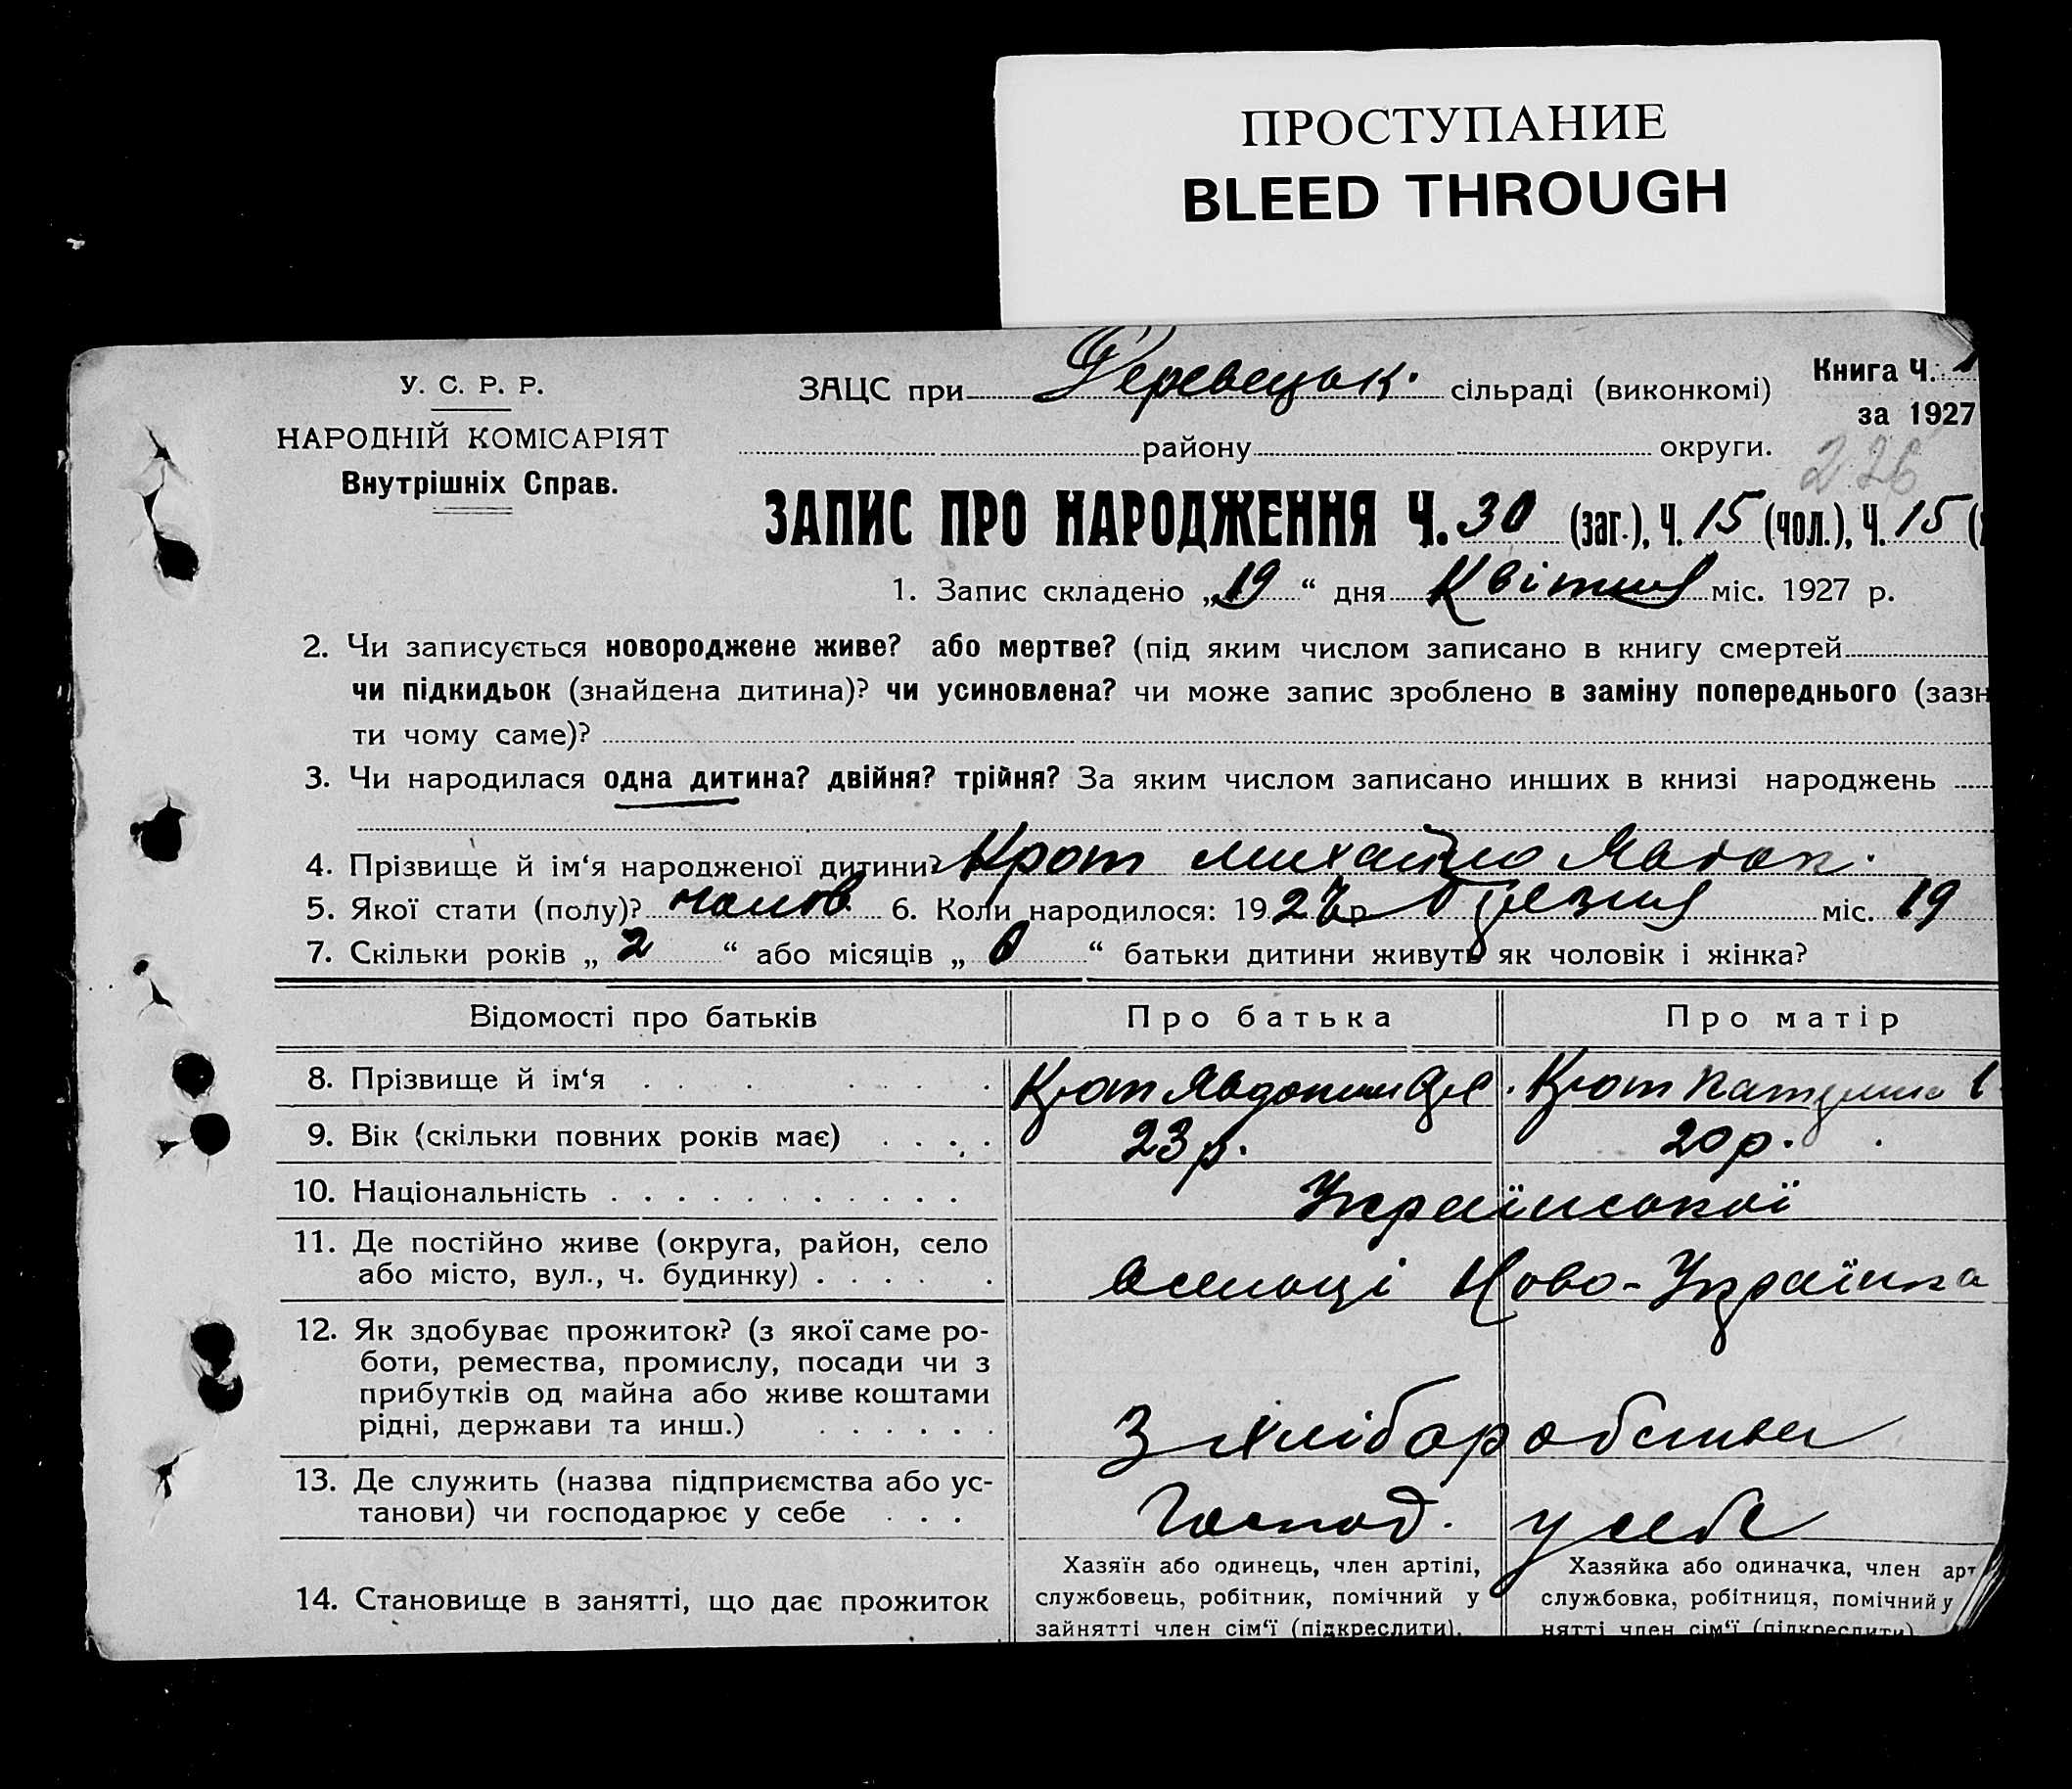 ПРОСТУПАНИЕ
BLEED THROUGH
У. С. Р. Р.
НАРОДНІЙ КОМІСАРІЯТ
Внутрішніх Справ.
ЗАЦС при Деревецьк. сільраді (виконкомі)
Книга Ч.
за 1927
району округи.
226
ЗАПИС ПРО НАРОДЖЕННЯ Ч. 30 (заг.), Ч. 15 (чол.), Ч. 15
1. Запис складено „19“ дня Квітня міс. 1927 р.
2. Чи записується новороджене живе? або мертве? (під яким числом записано в книгу смертей
чи підкидьок (знайдена дитина)? чи усиновлена? чи може запис зроблено в заміну попереднього (зазн
ти чому саме)?
3. Чи народилася одна дитина? двійня? трійня? За яким числом записано инших в книзі народжень
4. Прізвище й ім‘я народженої дитини? Крот Михайло
5. Якої стати (полу)? чолов. 6. Коли народилося: 1927 р. березня міс. 19
7. Скільки років „2“ або місяців „6“ батьки дитини живуть як чоловік і жінка?
Відомості про батьків Про батька Про матір
8. Прізвище й ім‘я . . . . . . . . Крот Крот Катерина
9. Вік (скільки повних років має) . . . . 23 р. 20 р.
10. Національність . . . . . . . . . . . Української
11. Де постійно живе (округа, район, село
або місто, вул., ч. будинку) . . . . . Ново-Українка
12. Як здобуває прожиток? (з якої саме ро-
боти, ремества, промислу, посади чи з
прибутків од майна або живе коштами
рідні, держави та инш.) . . . . . . З хліборобства
13. Де служить (назва підприємства або ус-
танови) чи господарює у себе . . . Господ. у себе
14. Становище в занятті, що дає прожиток
Хазяїн або одинець, член артілі,
службовець, робітник, помічний у
зайнятті член сім‘ї (підкреслити).
Хазяйка або одиначка, член арт
службовка, робітниця, помічний у
нятті член сім‘ї (підкреслити)